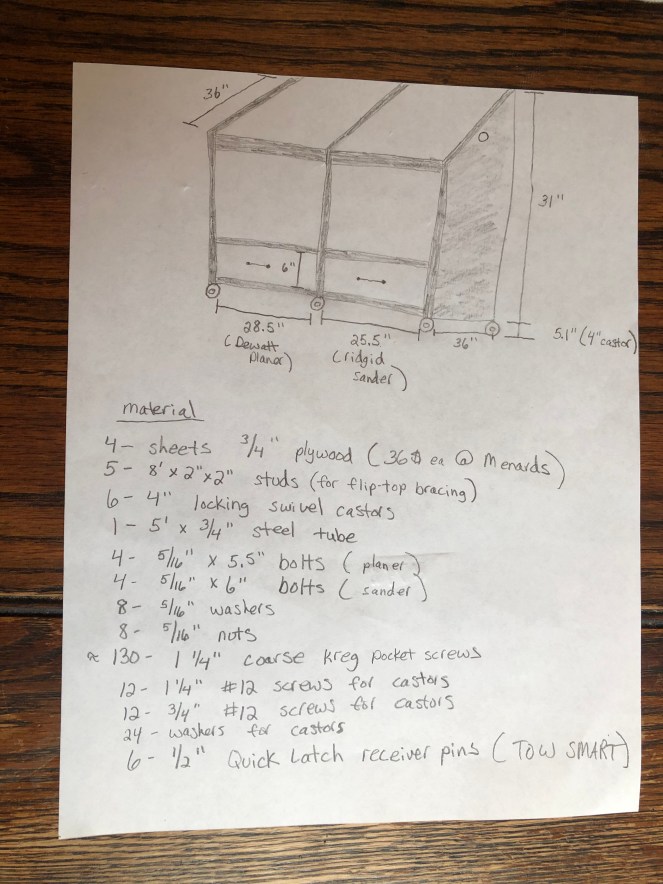 36"
31"
6"
28.5"
(Dewatt
Planer)
25.5"
(ridgid
sander)
36"
5.1" (4" castor)
material
4- sheets 3/4" plywood (36$ ea @ Menards)
5- 8' x 2" x 2" studs (for flip-top bracing)
6- 4" locking swivel castors
1- 5' x 3/4" steel tube
4- 5/16" x 5.5" bolts (planer)
4- 5/16" x 6" bolts (sander)
8- 5/16" washers
8- 5/16" nuts
≈ 130- 1 1/4" coarse kreg pocket screws
12- 1 1/4" #12 screws for castors
12- 3/4" #12 screws for castors
24- washers for castors
6- 1/2" Quick Latch receiver pins (TOW SMART)